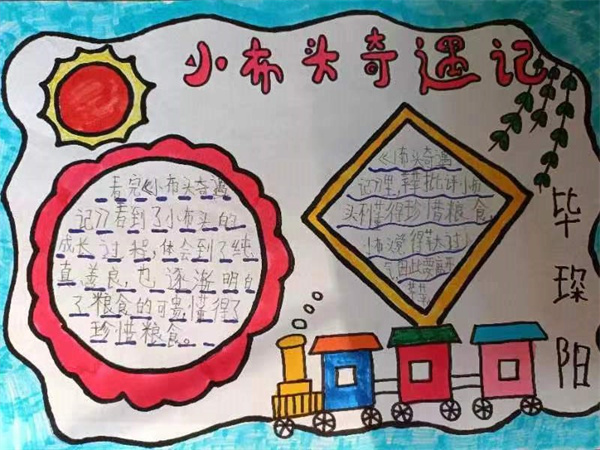 小布头奇遇记
看完《小布头奇遇
记》看到了小布头的
成长过程,体会到了纯
真善良,也逐渐明白
了粮食的可贵懂得了
珍惜粮食。
《小布头奇遇
记》里,苹苹批评小布
头不懂得珍惜粮食,
小布头觉得苹
气,因此要离开
苹苹
毕琛阳